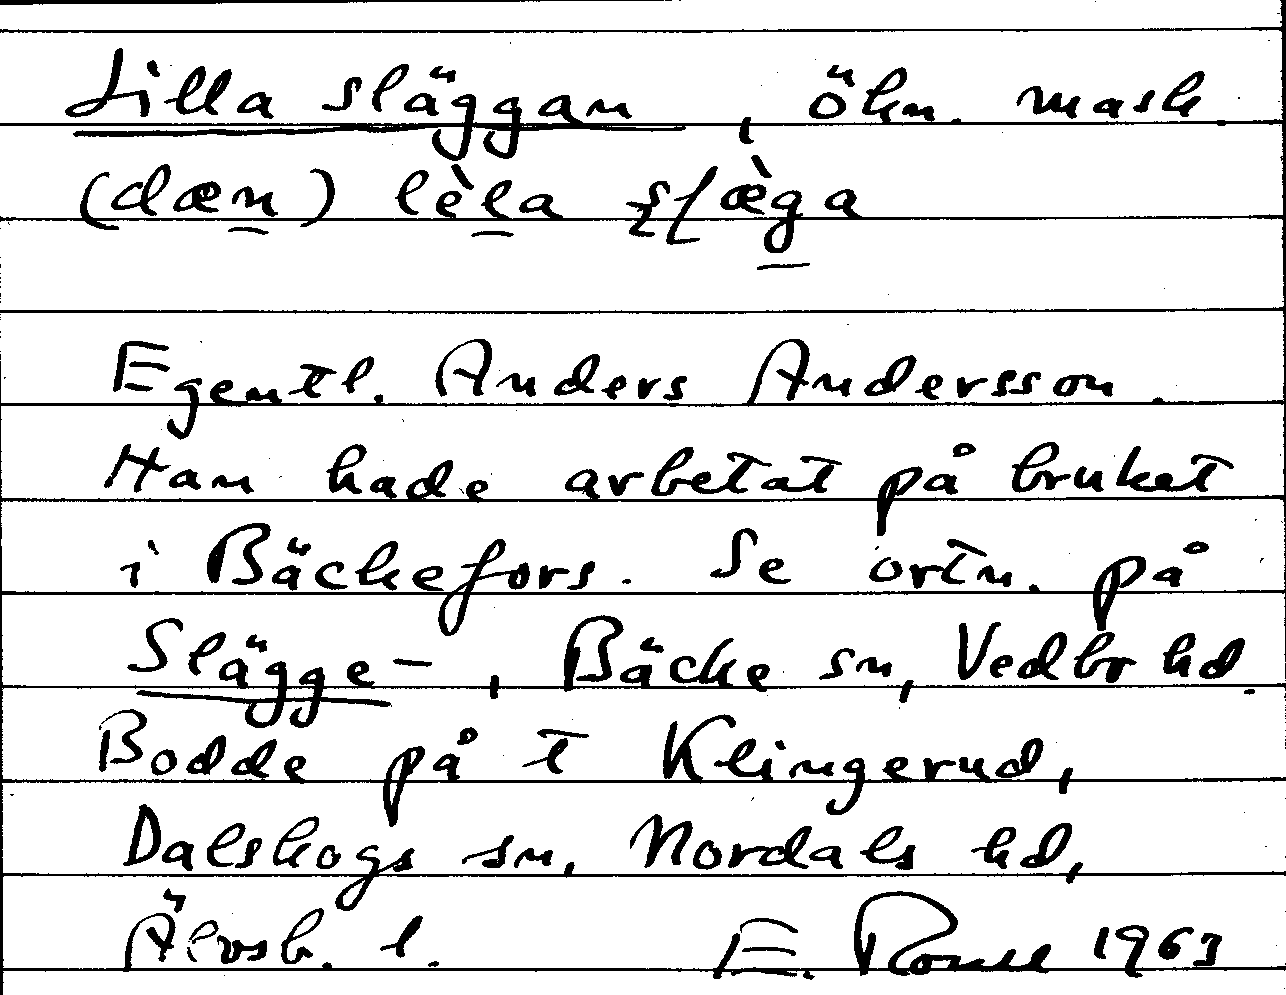 Lilla släggan, ökn. mask.
(dæn) lèla slæ̀ga
Egentl. Anders Andersson.
Han hade arbetat på bruket
i Bäckefors. Se ortn. på
Slägge-, Bäcke sn, Vedbo hd.
Bodde på t Klingerud,
Dalskogs sn, Nordals hd,
Älvsb. l. E. 1963